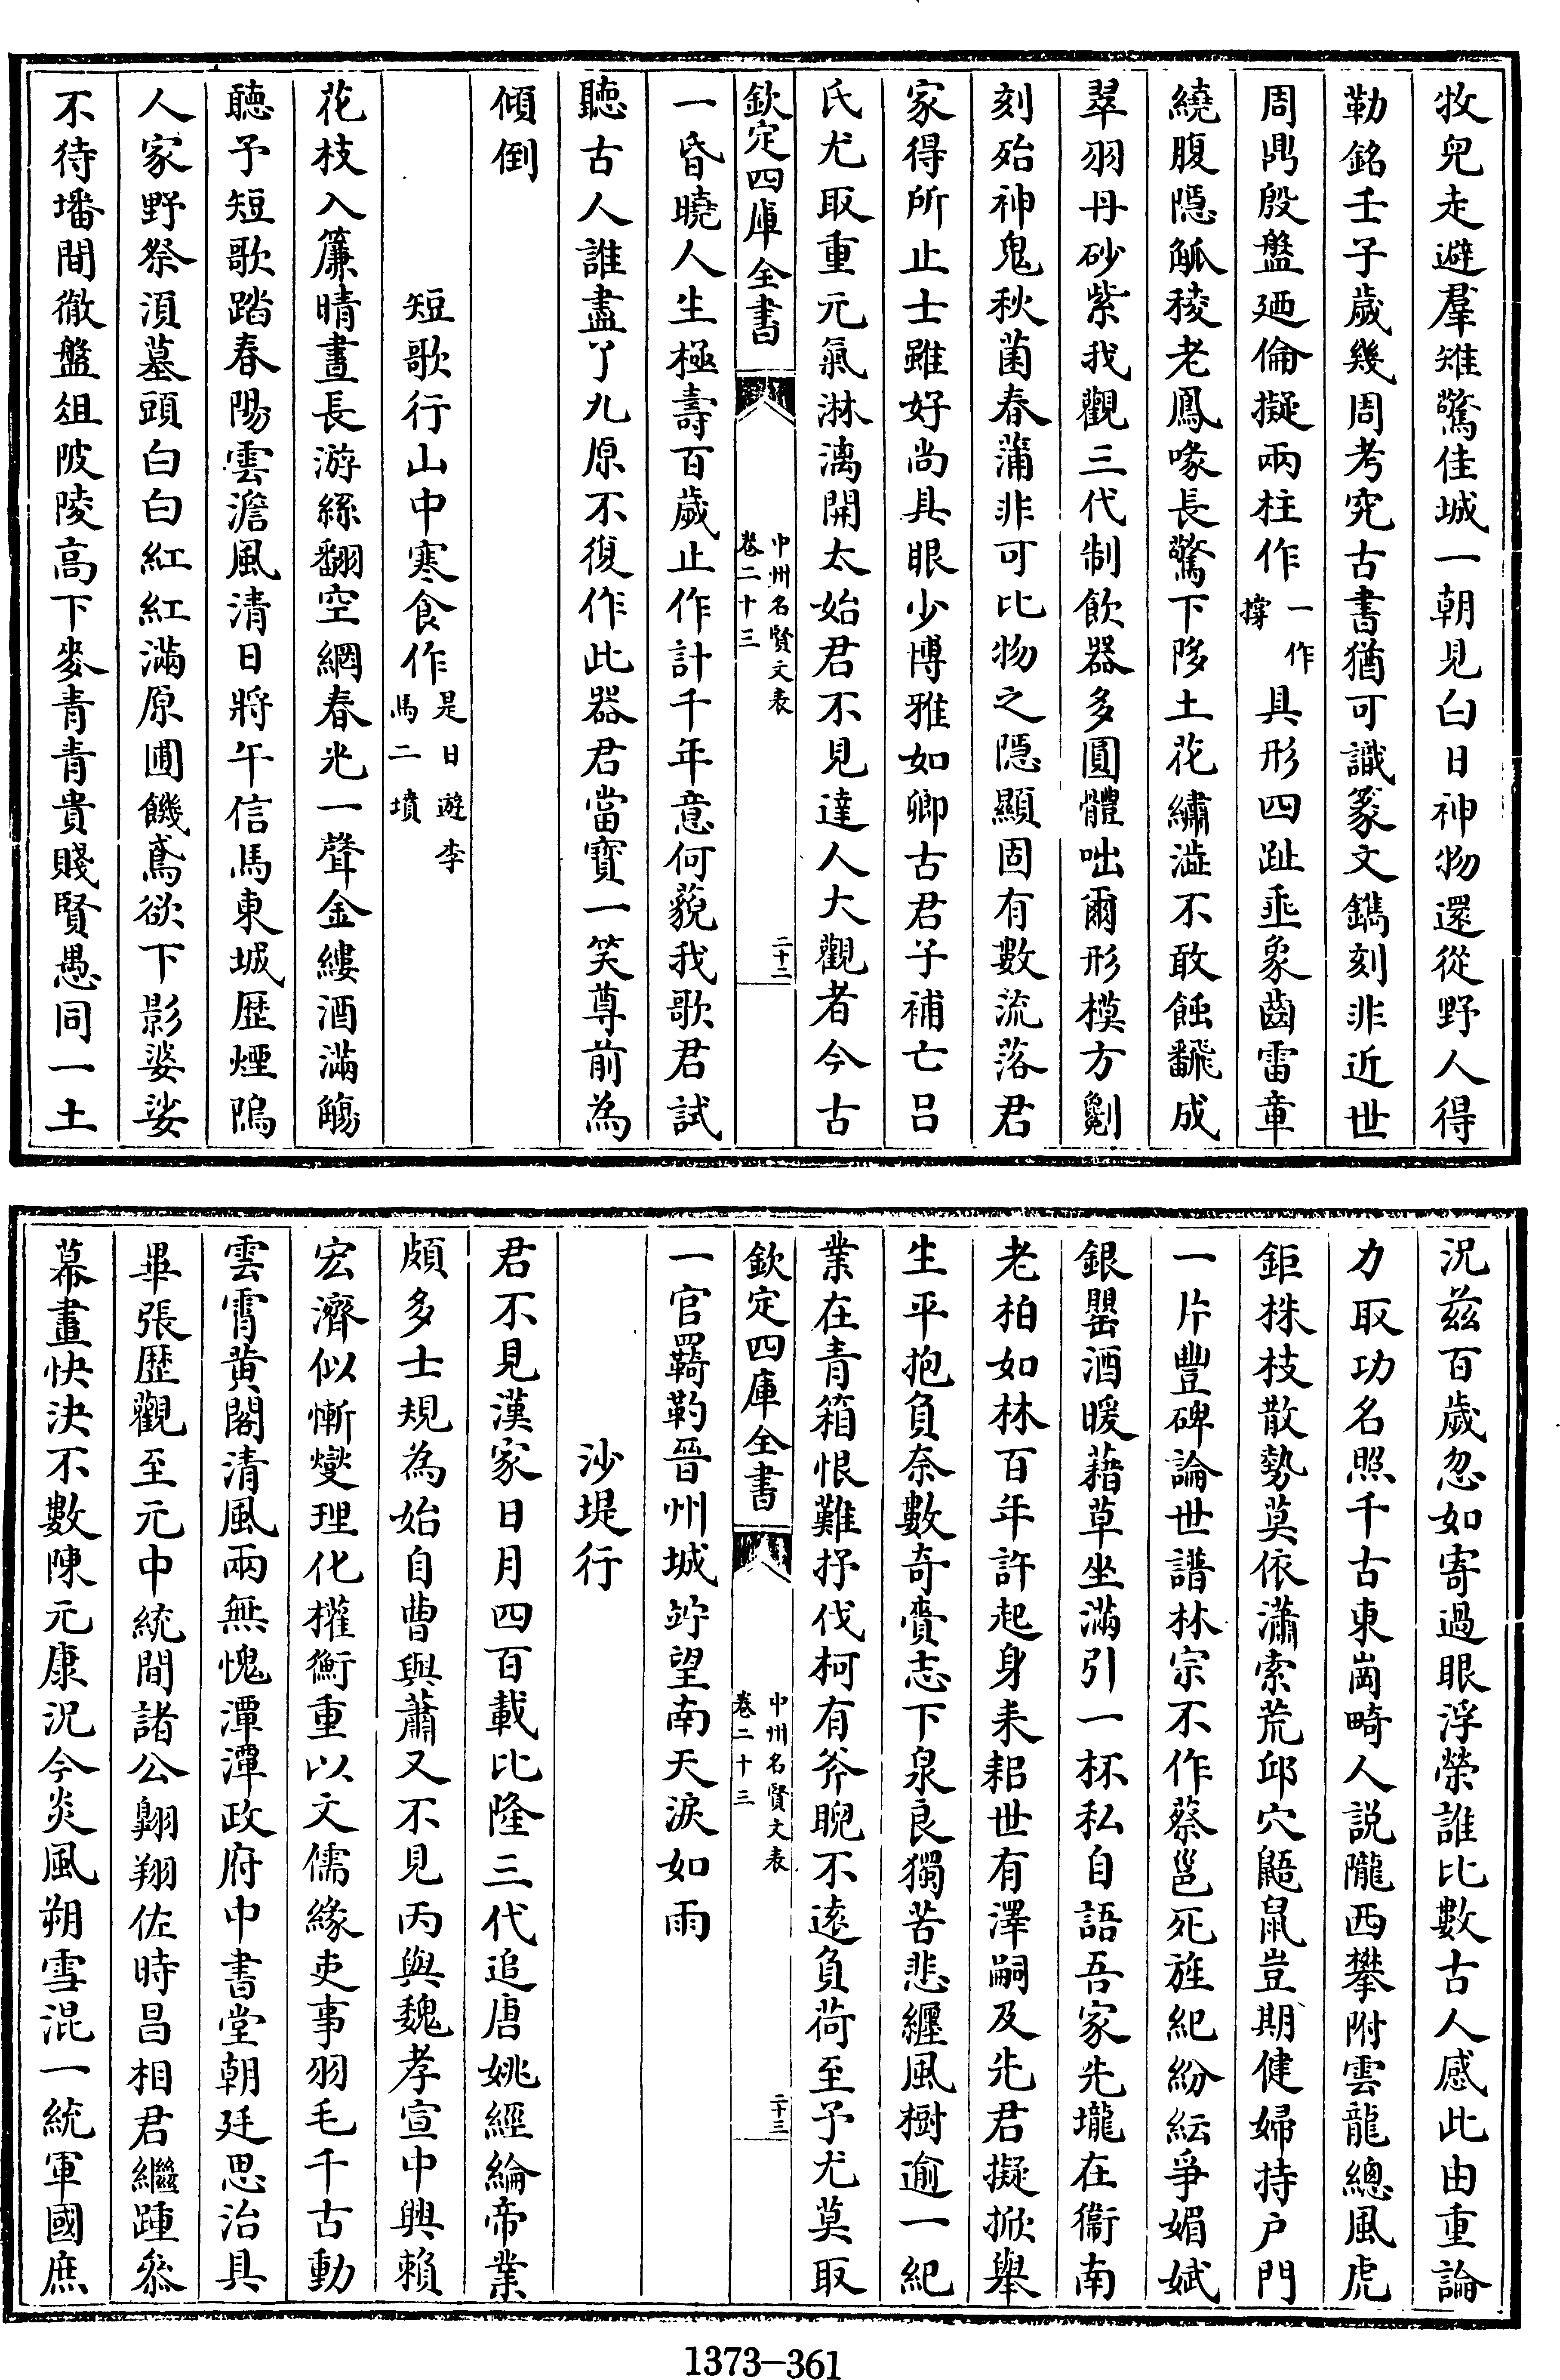 牧兒走避羣雉驚佳城一朝見白日神物還從野人得
勒銘壬子歲幾周考究古書猶可識篆文鐫刻非近世
周鼎殷盤廼倫擬兩柱作一作撐具形四趾垂象齒雷章
繞腹隠觚稜老鳳喙長驚下陊土花繡澁不敢蝕飜成
翠羽丹砂紫我觀三代制飲器多圓體咄爾形模方劖
刻殆神鬼秋菌春蒲非可比物之隠顯固有數流落君
家得所止士雖好尚具眼少博雅如卿古君子補亡吕
氏尤取重元氣淋漓開太始君不見達人大觀者今古
欽定四庫全書 中州名賢文表卷二十三 二十二
一昏曉人生極壽百歲止作計千年意何藐我歌君試
聽古人誰盡了九原不復作此器君當寳一笑尊前為
傾倒
短歌行山中寒食作是日遊李馬二墳
花枝入簾晴晝長游絲翻空網春光一聲金縷酒滿觴
聽予短歌踏春陽雲澹風清日將午信馬東城歴煙隖
人家野祭湏墓頭白白紅紅滿原圃饑鳶欲下影婆娑
不待墦間徹盤俎陂陵高下麥青青貴賤賢愚同一土
況兹百歲忽如寄過眼浮榮誰比數古人感此由重論
力取功名照千古東崗畸人説隴西攀附雲龍總風虎
鉅株枝散勢莫依瀟索荒邱穴鼯鼠豈期健婦持户門
一片豐碑論世譜林宗不作蔡邕死旌紀紛紜爭媚斌
銀罌酒暖藉草坐滿引一杯私自語吾家先壠在衞南
老柏如林百年許起身耒耜世有澤嗣及先君擬掀舉
生平抱負奈數奇賫志下泉良獨苦悲纒風樹逾一紀
業在青箱恨難抒伐柯有斧睨不逺負荷至予尤莫取
欽定四庫全書 中州名賢文表卷二十三 二十三
一官羈靮晉州城竚望南天淚如雨
沙堤行
君不見漢家日月四百載比隆三代追唐姚經綸帝業
頗多士規為始自曹與蕭又不見丙與魏孝宣中興賴
宏濟似慚燮理化權衡重以文儒緣吏事羽毛千古動
雲霄黄閣清風兩無愧潭潭政府中書堂朝廷思治具
畢張歴觀至元中統間諸公翺翔佐時昌相君繼踵叅
幕畫快決不數陳元康況今炎風朔雪混一統軍國庶
1373-361